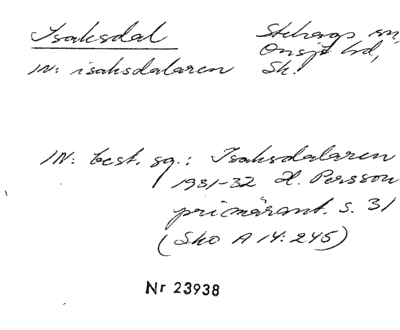 Isaksdal
Stehags sn,
Onsjö hd,
Sk.
IN: isaksdalaren
IN: best. sg.: Isaksdalaren
1931-32 H. Persson
primärant. s. 31
(Sko A 14:245)
Nr 23938